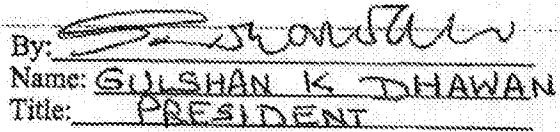 By:
Name: GULSHAN K DHAWAN
Title: PRESIDENT